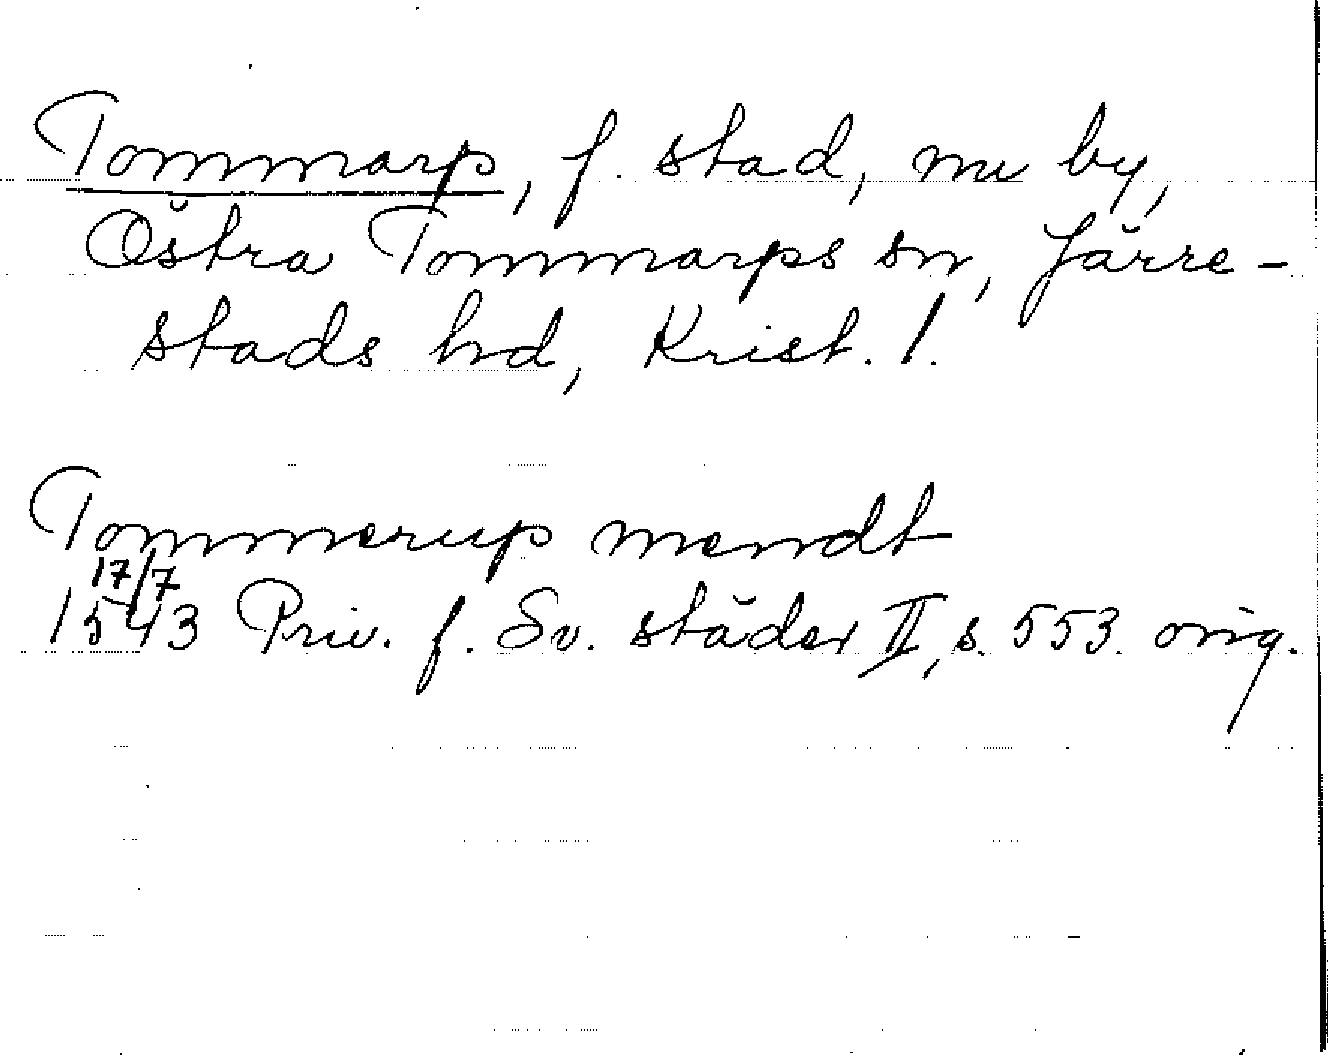 Tommarp, f. stad, nu by,
Östra Tommarps sn, Järre-
stads hd, Krist. l.
Tommerup mendt
17/7
1543 Priv. f. Sv. städer II, s. 553. orig.